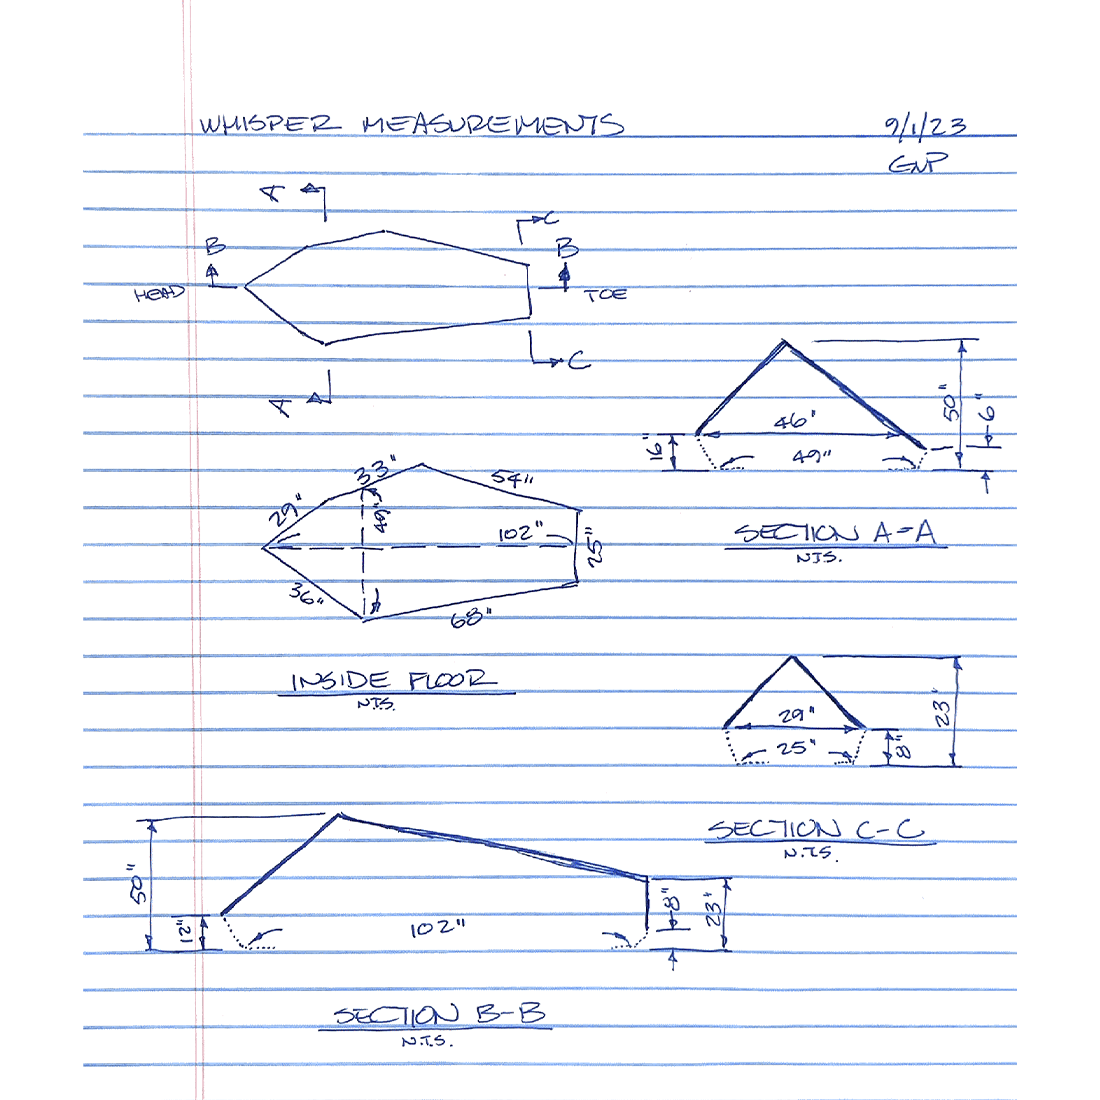 WHISPER MEASUREMENTS 9/1/23
GNP
A
C
B B
HEAD TOE
C
A
50"
6"
46"
16"
49"
SECTION A-A
N.T.S.
33"
54"
29"
49"
102"
25"
36"
68"
INSIDE FLOOR
N.T.S.
29"
23"
25"
8"
SECTION C-C
N.T.S.
50"
8"
23"
12"
102"
SECTION B-B
N.T.S.